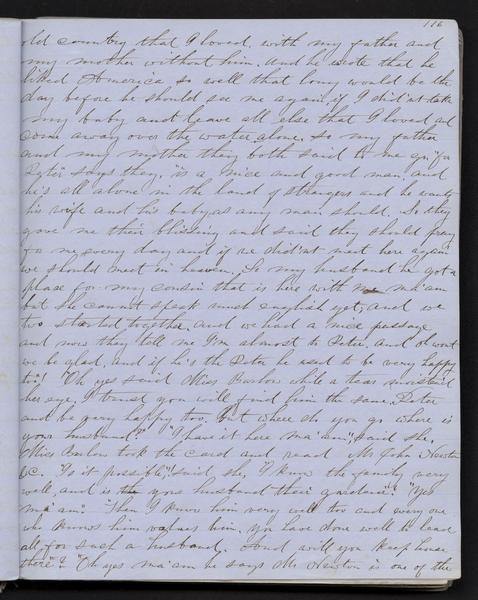 116
old country that I loved, with my father and
my mother without him. And he wrote that he
liked America so well that long would be the
day before he should see me again if I did'nt take
my baby and leave all else that I loved and
come away over the water alone. So my father
and my mother they both said to me go, "for
Peter" says they, is a nice and good man, and
he's all alone in the land of strangers and he wants
his wife and his baby as any man should. So they
gave me their blessing and said they should pray
for me every day and if we did'nt meet here again
we should meet in heaven. So my husband he got a
place for my cousin that is here with me ma'am
but she cannot speak much english yet, and we
two started together. And we had a nice passage
and now they tell me I'm almost to Peter. And O wont
we be glad, and if he's the Peter he used to be very happy
too"! "Oh yes said Miss Barlow while a tear moistened
her eye, I trust you will find him the same Peter
and be very happy too. But where do you go where is
your husband?" "I have it here ma'am", said she.
Miss Barlow took the card and read Mr John Newton
&C. "Is it possible", said she, "I know the family very
well, and is the yours husband their gardener"? "Yes
ma'am." Then I know him very well too and every one
who knows him values him, you have done well to leave
all for such a husband. And will you keep house
there"? "Oh yes ma'am he says Mr Newton is one of the